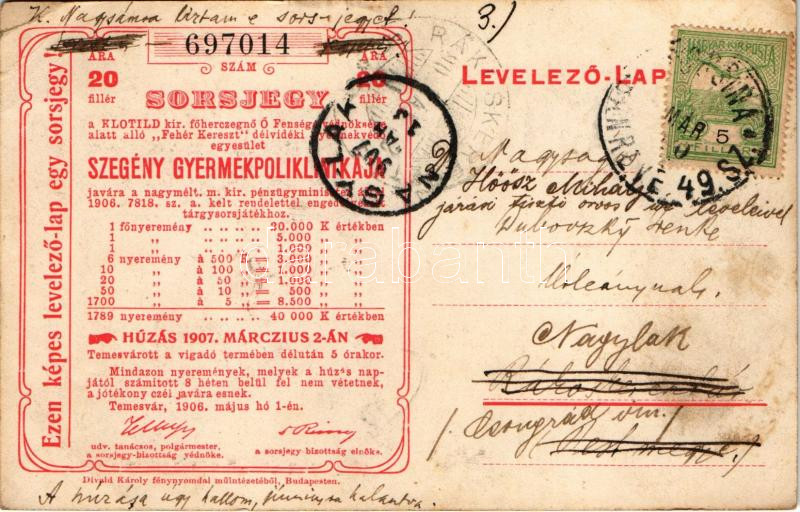 K. Nagysámra bíztam e sorsjegyet!
3.)
697014
SZÁM
ÁRA
20
fillér
ÁRA
20
fillér
SORSJEGY
a KLOTILD kir. főherczegnő Ő Fensége védnöksége
alatt álló „Fehér Kereszt" délvidéki gyermekvédő
egyesület
SZEGÉNY GYERMEKPOLIKLINIKÁJA
javára a nagymélt. m. kir. pénzügyminiszter által
1906. 7818. sz. a. kelt rendelettel engedélyezett
tárgysorsjátékhoz.
1 főnyeremény .. .. .. .. 20.000 K értékben
1 „ .. .. .. .. 5.000 „ „
1 „ .. .. .. .. 1.000 „ „
6 nyeremény à 500 K 3.000 „ „
10 „ à 100 „ 1.000 „ „
20 „ à 50 „ 1.000 „ „
50 „ à 10 „ 500 „ „
1700 „ à 5 „ 8.500 „ „
1789 nyeremény .. .. .. .. 40 000 K értékben
HÚZÁS 1907. MÁRCZIUS 2-ÁN
Temesvárott a vigadó termében délután 5 órakor.
Mindazon nyeremények, melyek a húzás nap-
jától számított 8 héten belül fel nem vétetnek,
a jótékony czél javára esnek.
Temesvár, 1906. május hó 1-én.
udv. tanácsos, polgármester,
a sorsjegy-bizottság védnöke.
a sorsjegy-bizottság elnöke.
Ezen képes levelező-lap egy sorsjegy
Divald Károly fénynyomdai műintézetéből, Budapesten.
LEVELEZŐ-LAP
MAGYAR KIR. POSTA
5
FILLÉR
49. SZ.
NAGYLAK
907
Nagysag
Höősz Mihály
járási tiszti orvos úr leveleivel
Dubovszky Lenke
Nagylak
/Csongrád vm./
A húzása úgy hallom,
darabanth